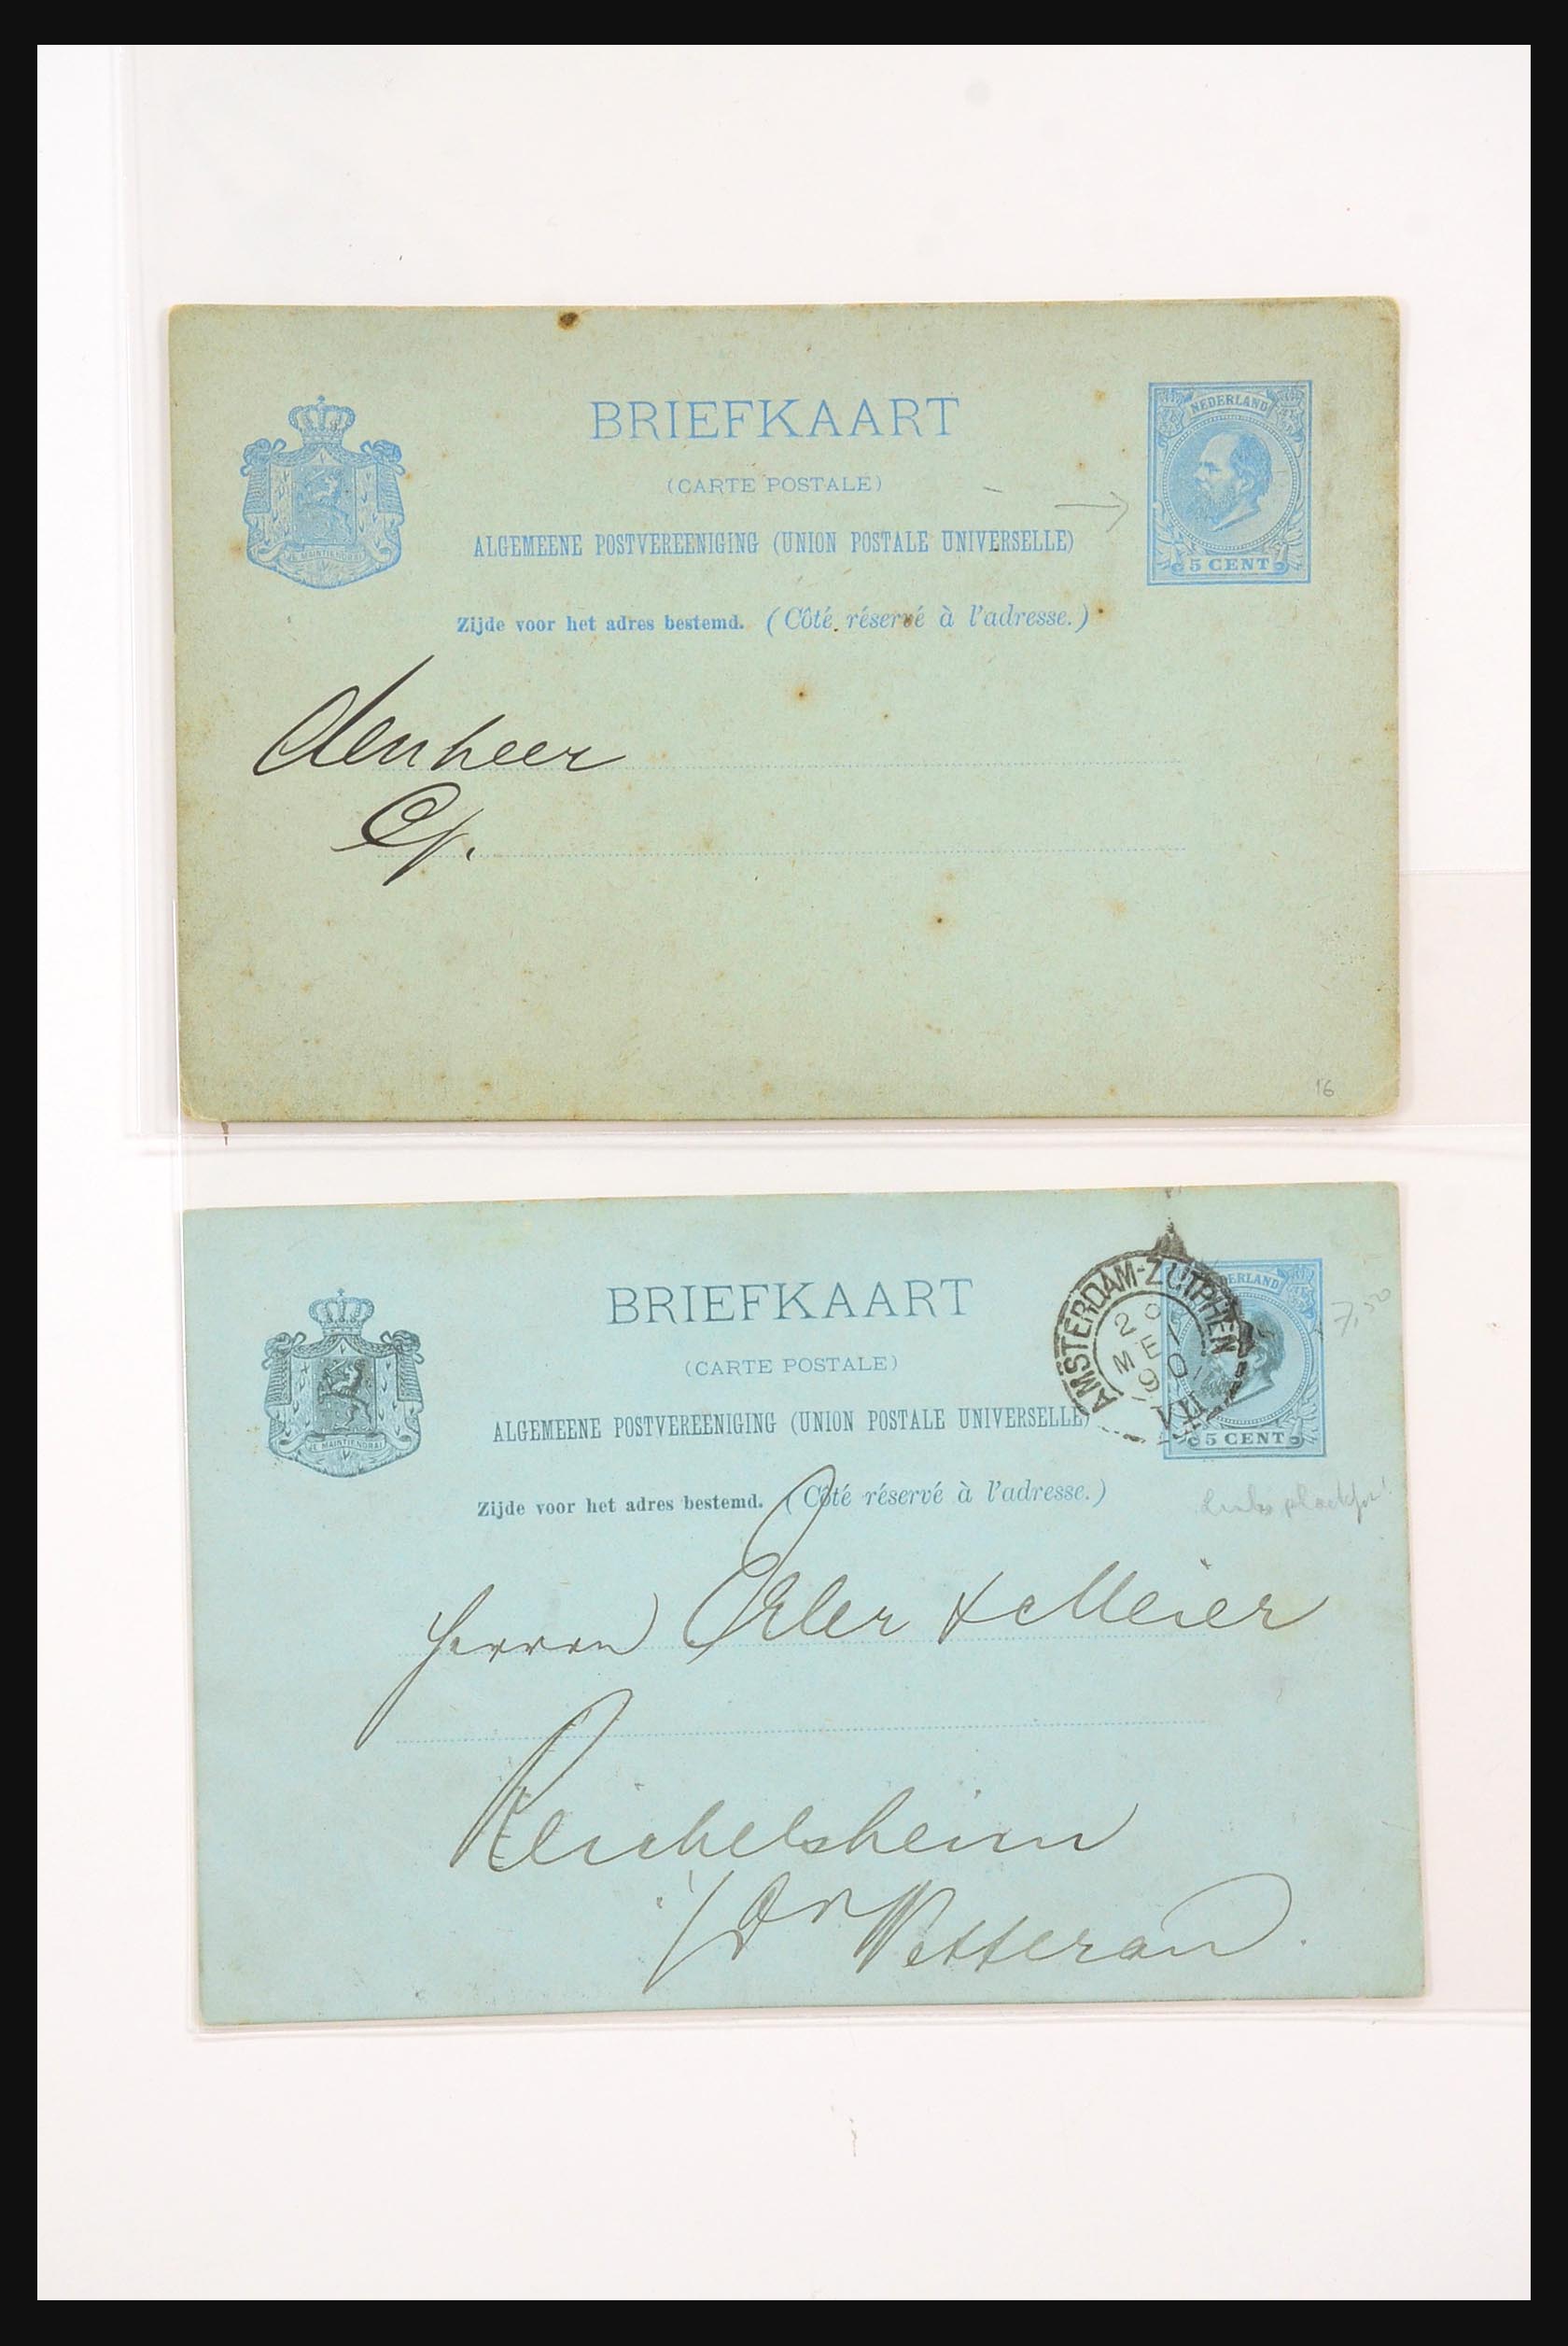 BRIEFKAART
(CARTE POSTALE)
ALGEMEENE POSTVEREENIGING (UNION POSTALE UNIVERSELLE)
Zijde voor het adres bestemd. (Côté réservé à l'adresse.)
JE MAINTIENDRAI
NEDERLAND
5 CENT
den heer
16
BRIEFKAART
(CARTE POSTALE)
ALGEMEENE POSTVEREENIGING (UNION POSTALE UNIVERSELLE)
Zijde voor het adres bestemd. (Côté réservé à l'adresse.)
JE MAINTIENDRAI
AMSTERDAM-ZUTPHEN
20
MEI
90
VII
DERLAND
5 CENT
7,50
Herren & Meier
Reichelsheim
i/Dr Wetterau.